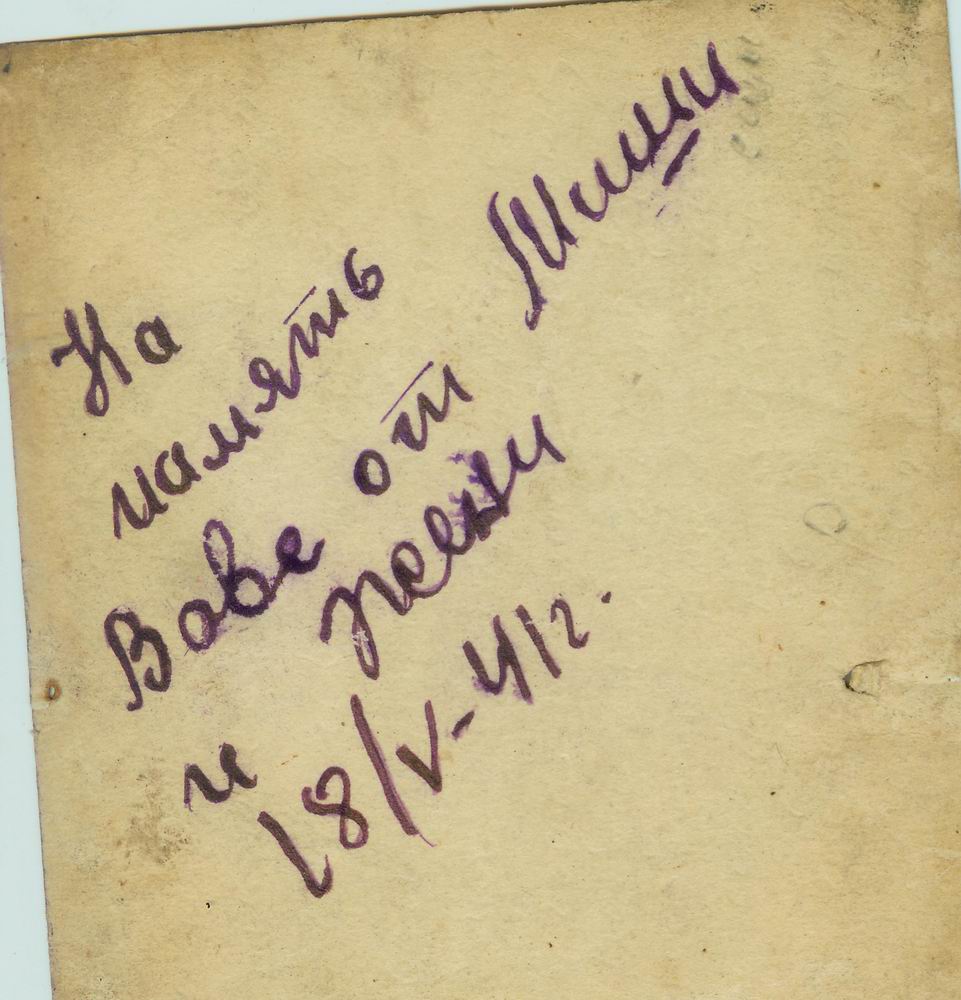 На
память
Вове от Миши
и жени
18/V-41г.